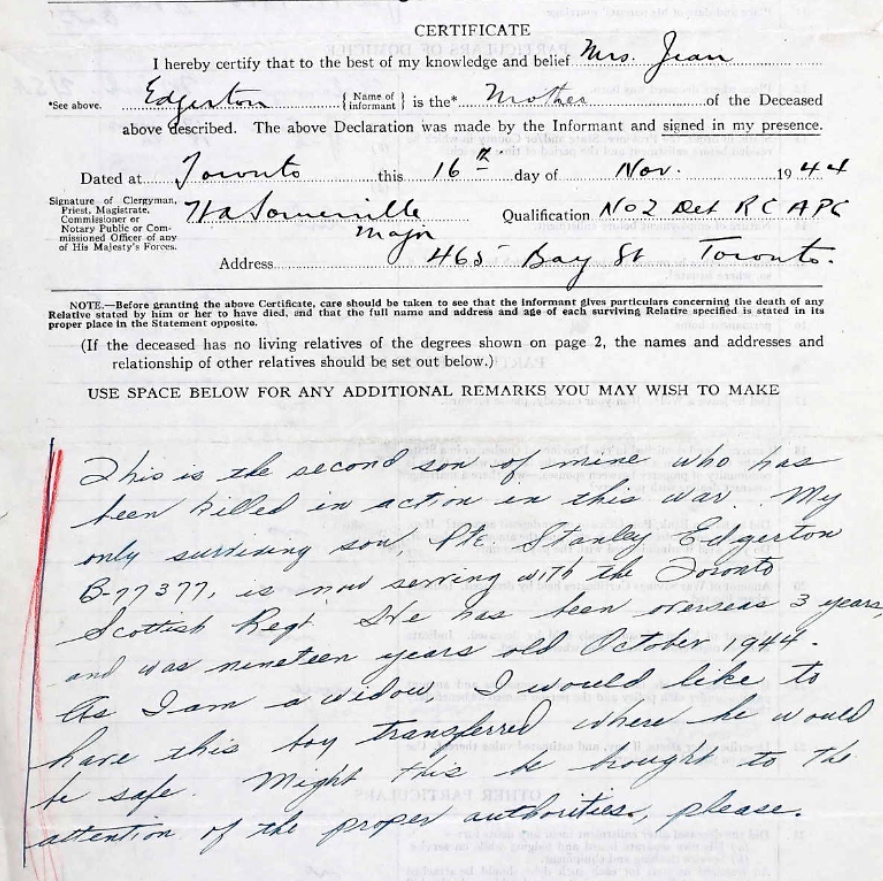 CERTIFICATE
I hereby certify that to the best of my knowledge and belief Mrs. Jean
*See above. Edgerton {Name of informant} is the* Mother of the Deceased
above described. The above Declaration was made by the Informant and signed in my presence.
Dated at Toronto this 16th day of Nov. 1944
Signature of Clergyman,
Priest, Magistrate,
Commissioner or
Notary Public or Com-
missioned Officer of any
of His Majesty's Forces.
Somerville
Major
Qualification No 2 Det R C A P C
Address 465 Bay St Toronto.
NOTE.—Before granting the above Certificate, care should be taken to see that the informant gives particulars concerning the death of any
Relative stated by him or her to have died, and that the full name and address and age of each surviving Relative specified is stated in its
proper place in the Statement opposite.
(If the deceased has no living relatives of the degrees shown on page 2, the names and addresses and
relationship of other relatives should be set out below.)
USE SPACE BELOW FOR ANY ADDITIONAL REMARKS YOU MAY WISH TO MAKE
This is the second son of mine who has
been killed in action in this war. My
only surviving son, Pte. Stanley Edgerton
B-77377, is now serving with the Toronto
Scottish Regt. He has been overseas 3 years,
and was nineteen years old October 1944.
As I am a widow, I would like to
have this boy transferred where he would
be safe. Might this be brought to the
attention of the proper authorities, please.